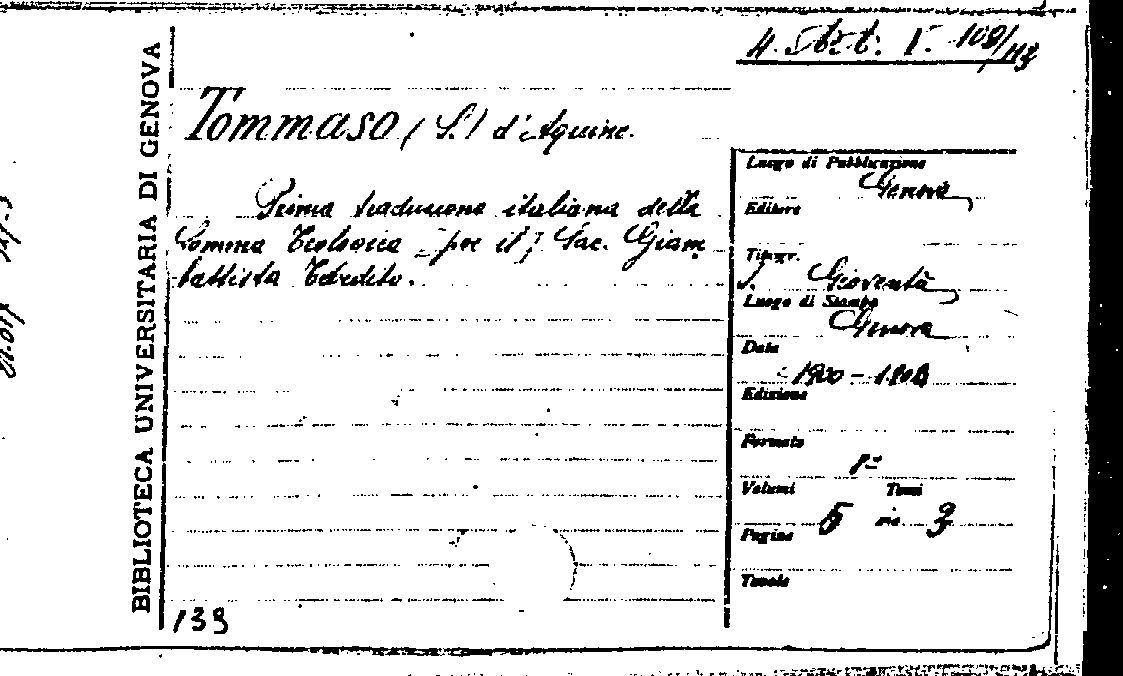 BIBLIOTECA UNIVERSITARIA DI GENOVA
Tommaso (S.) d'Aquino.
Prima traduzione italiana della
Somma Teologica [per il] Sac. Giam
battista
Luogo di Pubblicazione
Genova
Editore
Tipogr.
Gioventù
Luogo di Stampa
Genova
Data
1900 -
Edizione
Formato
Volumi Tomi
5 3
Pagine
Tavole
139